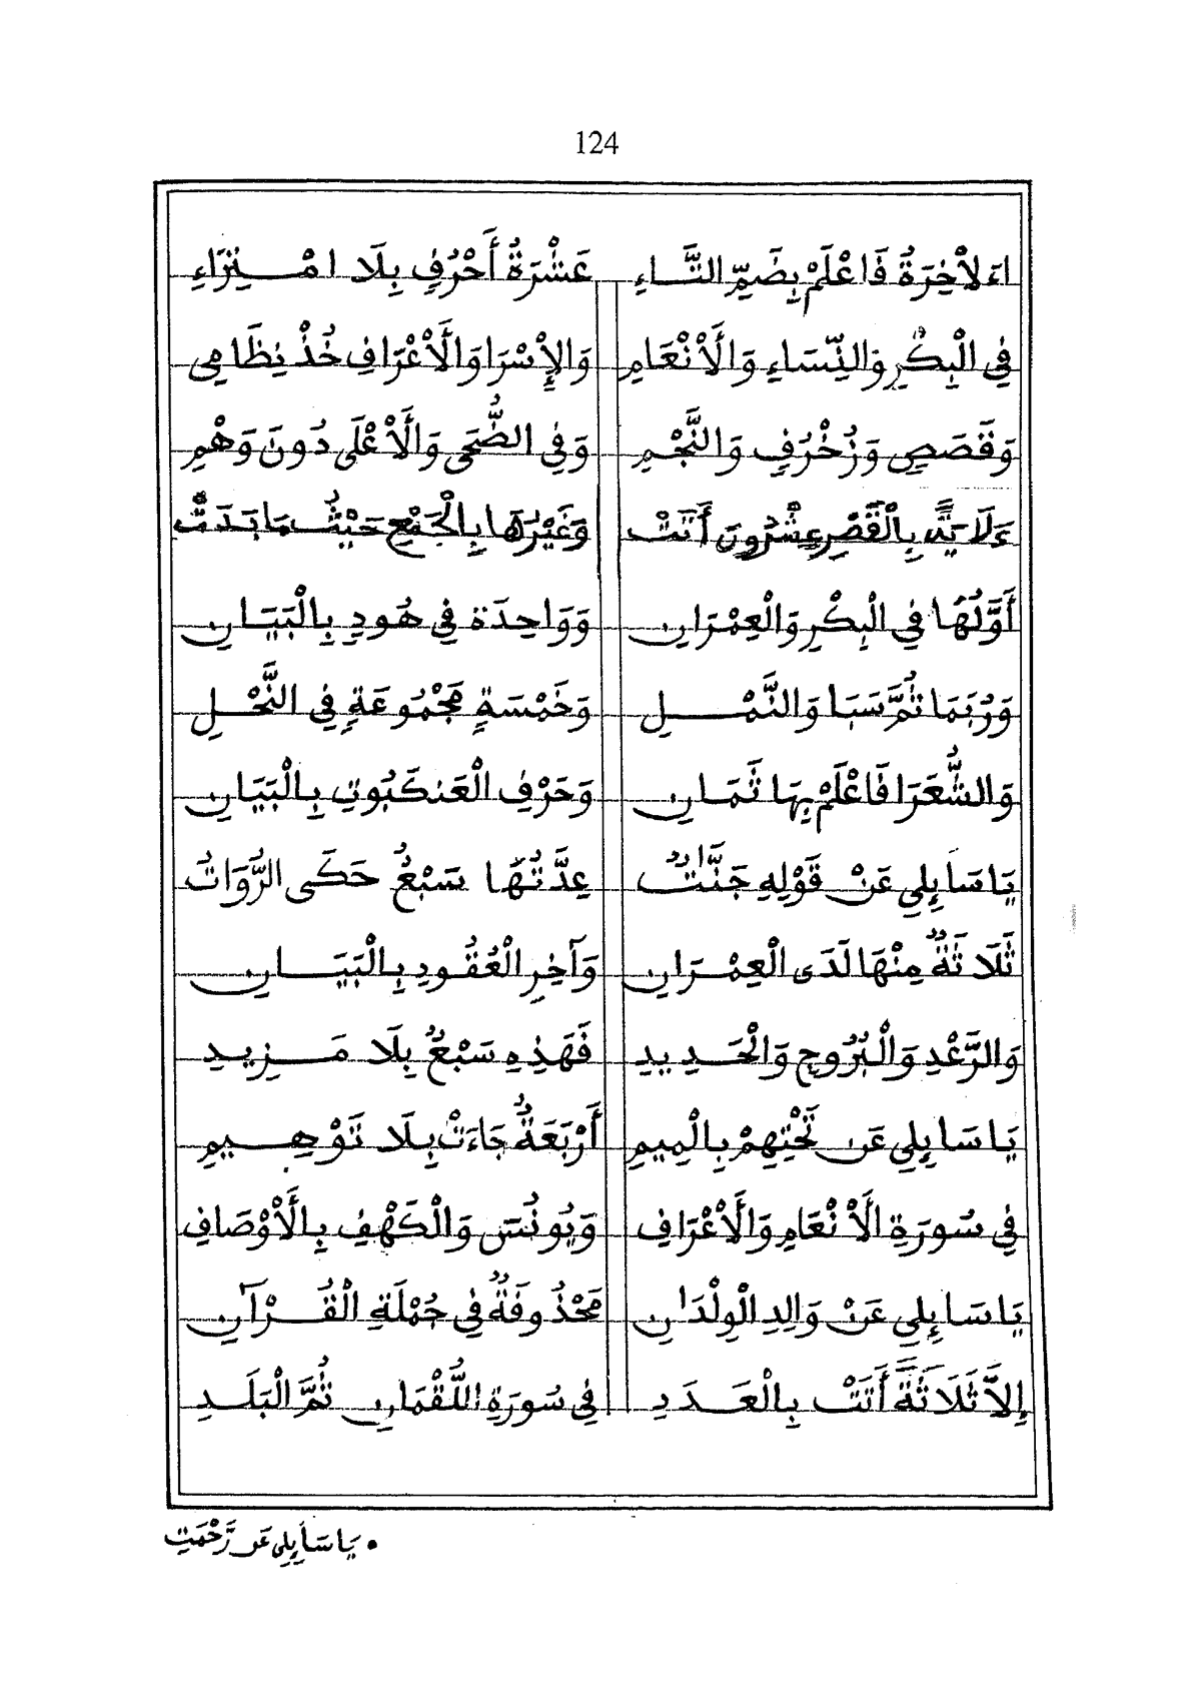 124
اءَلَاْخِرَةُ فَاعْلَمْ بِضَمِّ التَّاءِ عَشْرَةُ أَحْرُفٍ بِلَا امْتِرَاءِ
فِي الْبِكْرِ وَالنِّسَاءِ وَالْأَنْعَامِ وَالْإِسْرَا وَالْأَعْرَافِ خُذْ نِظَامِي
وَقَصَصٍ وَزُخْرُفٍ وَالنَّجْمِ وَفِي الضُّحَى وَالْأَعْلَى دُونَ وَهْمِ
ءَلَايَةً بِالْقَصْرِ عِشْرُونَ أَتَتْ وَغَيْرُهَا بِالْجَمْعِ حَيْثُ مَا بَدَتْ
أَوَّلُهَا فِي الْبِكْرِ وَالْعِمْرَانِ وَوَاحِدَة فِي هُودٍ بِالْبَيَانِ
وَرُبَمَا ثُمَّ سَبَا وَالنَّمْلِ وَخَمْسَةٍ مَجْمُوعَةٍ فِي النَّحْلِ
وَالشُّعَرَا فَاعْلَمْ بِهَا ثَمَانِ وَحَرْفِ الْعَنكَبُوتِ بِالْبَيَانِ
يَا سَايِلِي عَنْ قَوْلِهِ جَنَّاتٌ عِدَّتُهَا سَبْعُ حَكَى الرُّوَاتُ
ثَلَاثَةٌ مِنْهَا لَدَى الْعِمْرَانِ وَآخِرِ الْعُقُودِ بِالْبَيَانِ
وَالرَّعْدِ وَالْبُرُوجِ وَالْحَدِيدِ فَهَذِهِ سَبْعٌ بِلَا مَزِيدِ
يَا سَايِلِي عَن تَحْتِهِمْ بِالْمِيمِ أَرْبَعَةٌ جَاءَتْ بِلَا تَوْهِيمِ
فِي سُورَةِ الْأَنْعَامِ وَالْأَعْرَافِ وَيُونُسَ وَالْكَهْفِ بِالْأَوْصَافِ
يَا سَايِلِي عَنْ وَالِدِ الْوِلْدَانِ مَحْذُوفَةٌ فِي جُمْلَةِ الْقُرْآنِ
إِلَّا ثَلَاثَةً أَتَتْ بِالْعَدَدِ فِي سُورَةِ اللُّقْمَانِ ثُمَّ الْبَلَدِ
• يَا سَايِلِي عَن رَّحْمَتِ